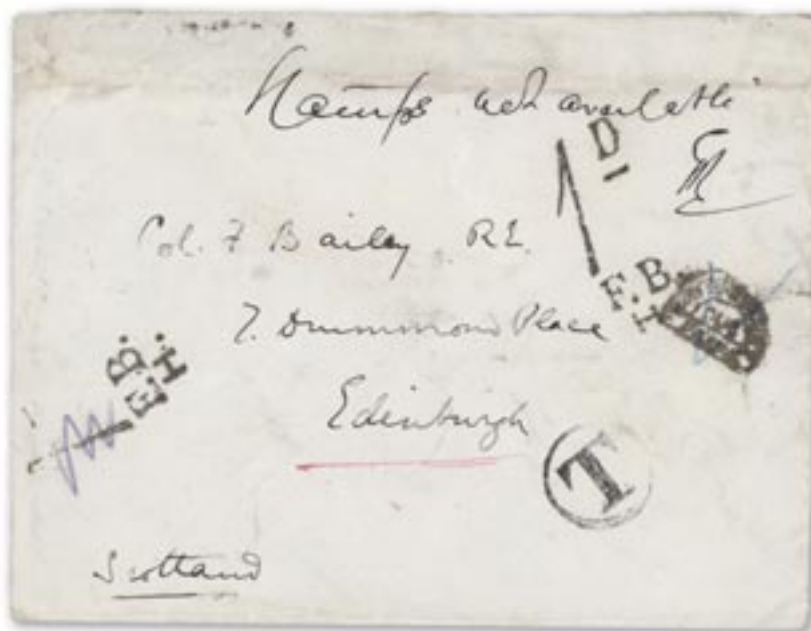 Stamps not available
1 D
Col. F Bailey. R.E.
F.B.
H
7. Drummond Place
F.B.
E.H.
Edinburgh
T
Scotland